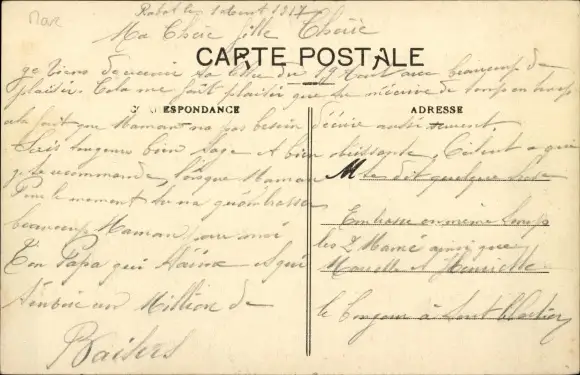 Rabat le 1 Aout 1917
Ma Chére fille Chérie
CARTE POSTALE
je viens de recevoir ta lettre du 19 Aout avec beaucoup de
plaisir. Cela me fait plaisir que tu m'écrive de temps en temps
CORRESPONDANCE
ADRESSE
cela fait que Maman na pas besoin décrire aussi
Sois toujours bien sage et bien obéissante, C'étint a qui
je te recommande, lorsque Maman
Mte dit quelque chose
Pour le moment tu na qu'embrasser
beaucoup Maman pour moi
Ton Papa qui t'aime et qui
t'envoie un Million de
Baisers
Embrasse en même temps
les 2 Mamé ainsi que
Marcelle et Henriette
le bonjour à tout